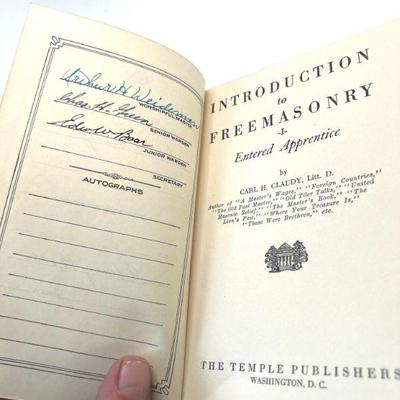 Arthur H Weideman
WORSHIPFUL MASTER
Chas H. Green
SENIOR WARDEN
Edw W Boor
JUNIOR WARDEN
SECRETARY
AUTOGRAPHS
INTRODUCTION
to
FREEMASONRY
-I-
Entered Apprentice
by
CARL H. CLAUDY, Litt. D.
Author of "A Master's Wages," "Foreign Countries,"
"The Old Past Master," "Old Tiler Talks," "United
Masonic Relief," "The Master's Book," "The
Lion's Paw," "Where Your Treasure Is,"
"These Were Brethren," etc.
THE TEMPLE PUBLISHERS
WASHINGTON, D. C.